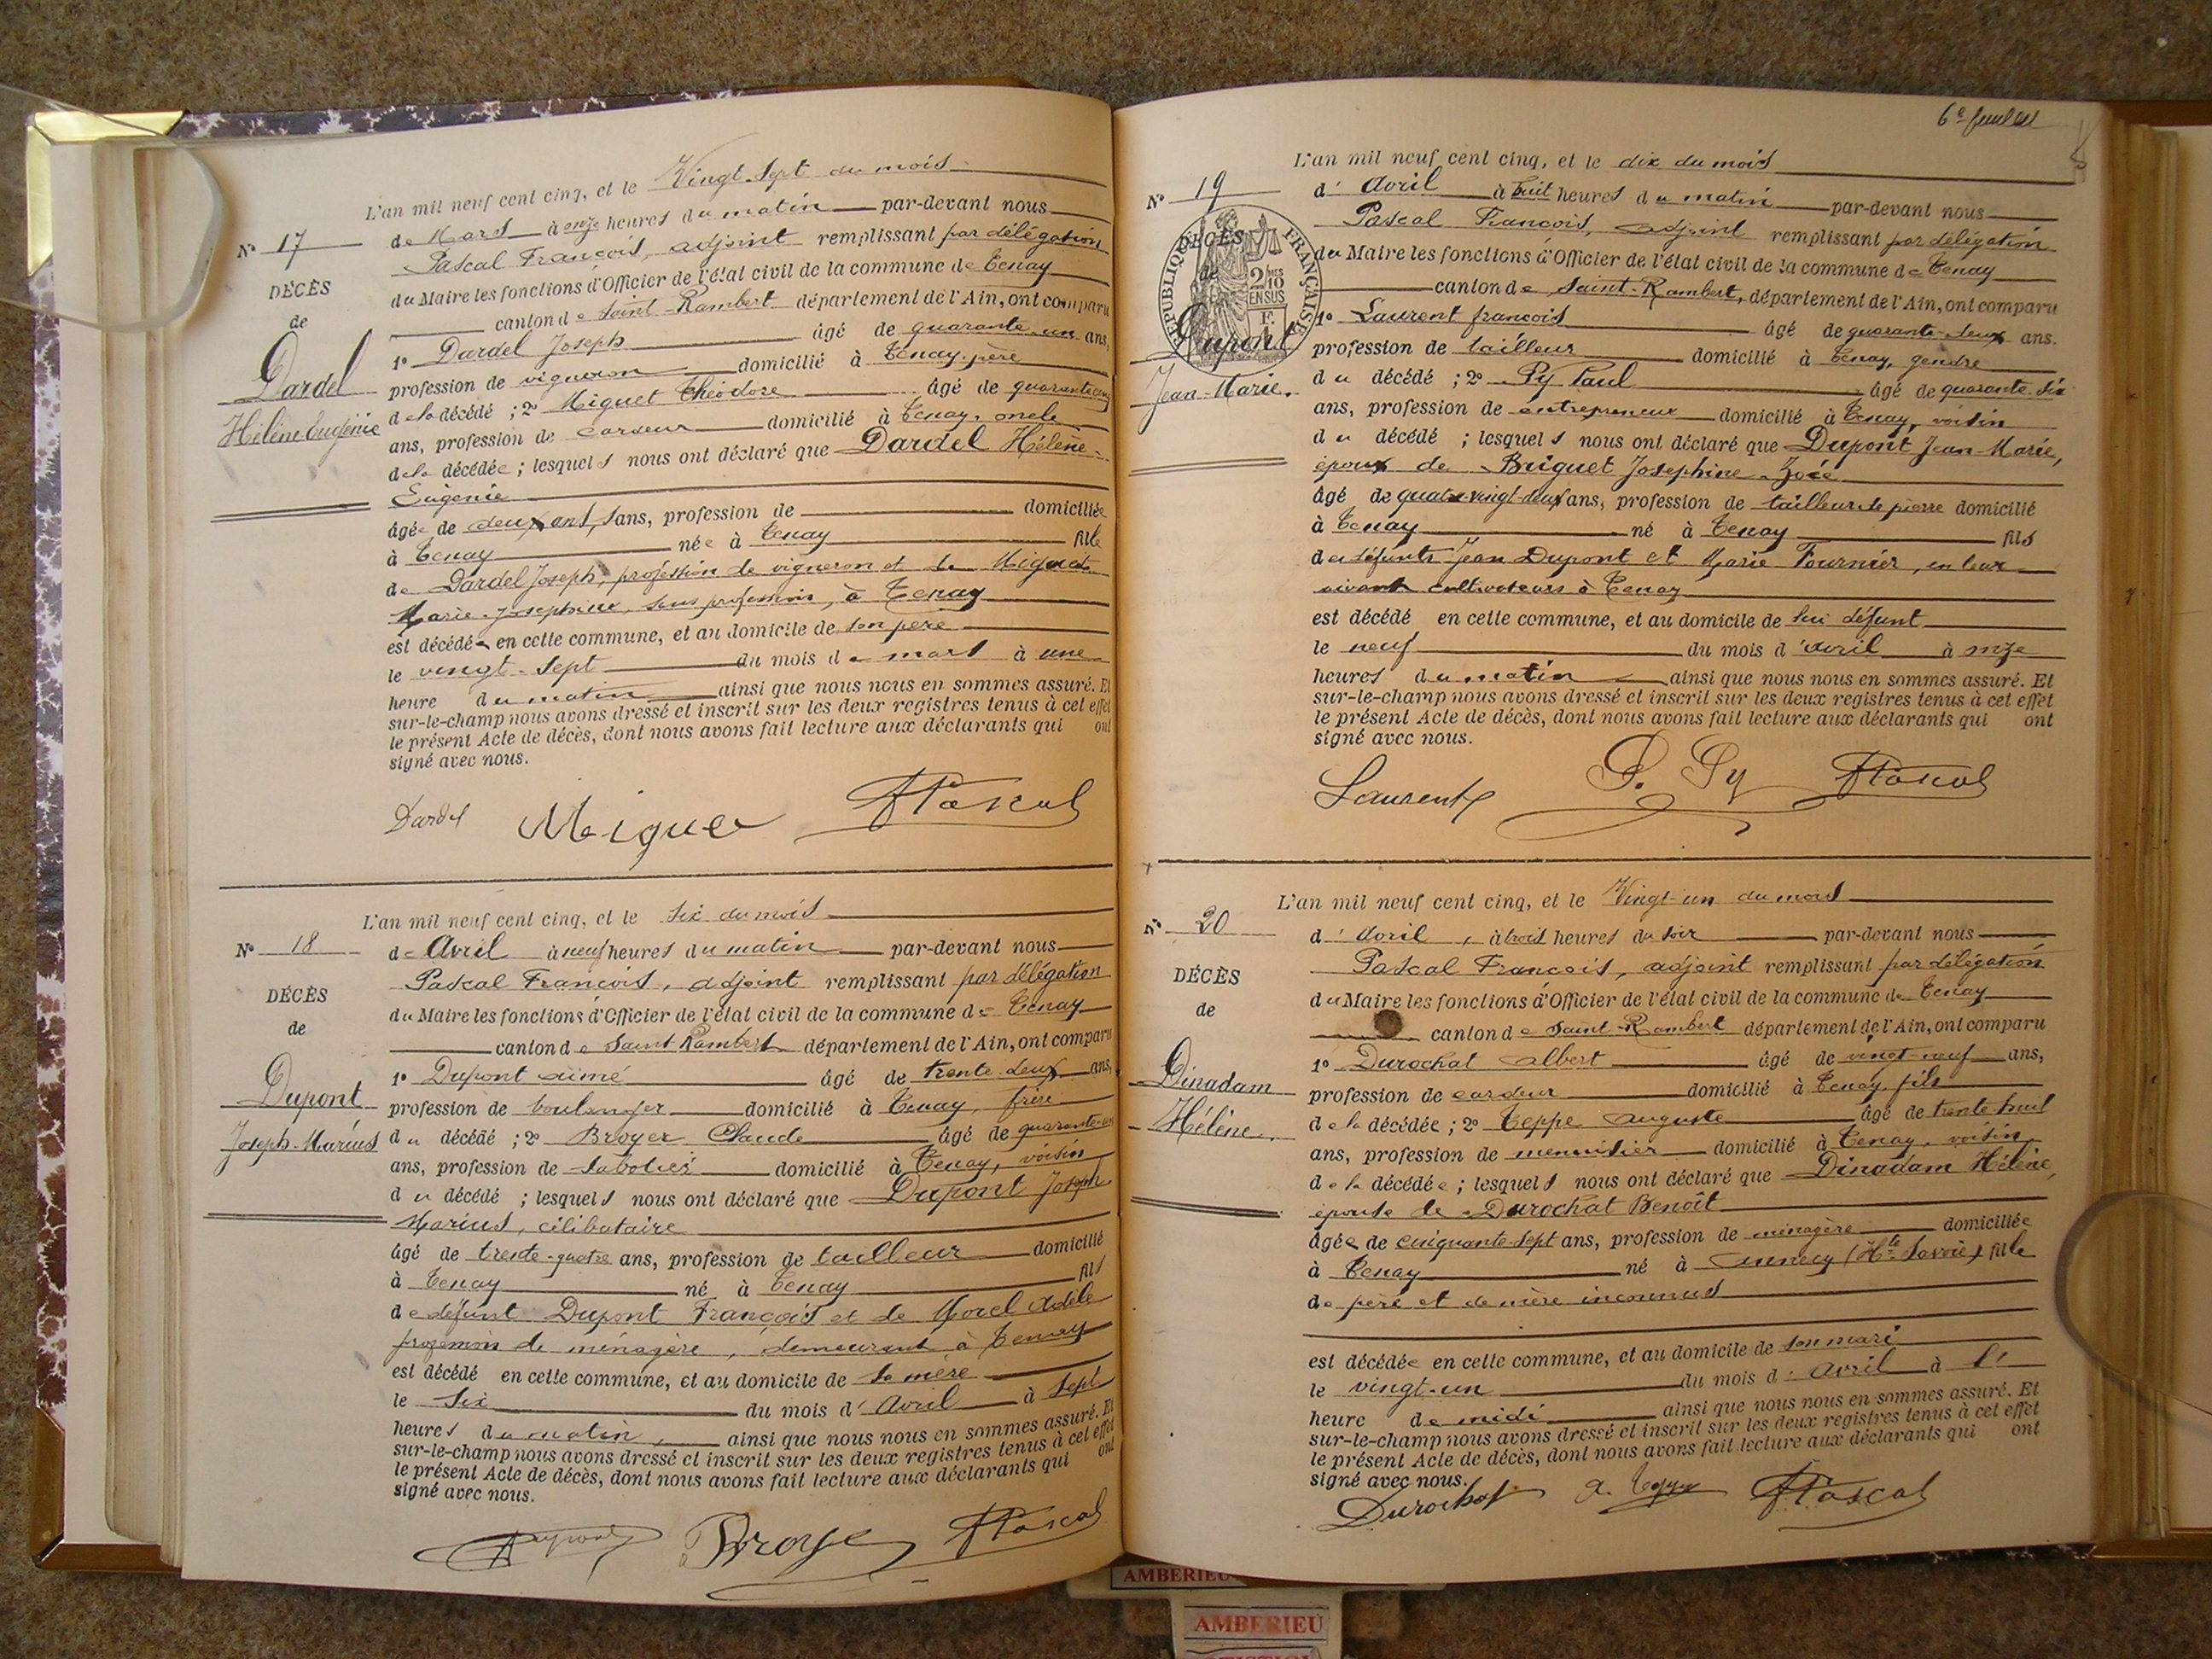 L'an mil neuf cent cinq, et le Vingt-Sept du mois
N° 17
de Mars à onze heures du matin par-devant nous
Pascal François, adjoint remplissant par délégation
DÉCÈS
du Maire les fonctions d'Officier de l'état civil de la commune de Tenay
de
canton de Saint-Rambert département de l'Ain, ont comparu
Dardel
Hélène Eugénie
1° Dardel Joseph âgé de quarante-un ans,
profession de vigneron domicilié à Tenay, père
de la décédé ; 2° Miguet Théodore âgé de quarante
ans, profession de cardeur domicilié à Tenay, oncle
de la décédée ; lesquels nous ont déclaré que Dardel Hélène-
Eugénie
âgée de deux ans, ans, profession de domiciliée
à Tenay née à Tenay fille
de Dardel Joseph, profession de vigneron et de Miguet
Marie-Josephine, sans profession, à Tenay
est décédée en cette commune, et au domicile de son père
le vingt-sept du mois de mars à une
heure du matin ainsi que nous nous en sommes assuré. Et
sur-le-champ nous avons dressé et inscrit sur les deux registres tenus à cet effet
le présent Acte de décès, dont nous avons fait lecture aux déclarants qui ont
signé avec nous.
Dardel Migue Pascal
L'an mil neuf cent cinq, et le Six du mois
N° 18
de Avril à neuf heures du matin par-devant nous
Pascal François, adjoint remplissant par délégation
DÉCÈS
du Maire les fonctions d'Officier de l'état civil de la commune de Tenay
de
canton de Saint Rambert département de l'Ain, ont comparu
Dupont
Joseph-Marius
1° Dupont aimé âgé de trente-deux ans,
profession de boulanger domicilié à Tenay, frère
du décédé ; 2° Broyer Claude âgé de quarante-un
ans, profession de sabotier domicilié à Tenay, voisin
du décédé ; lesquels nous ont déclaré que Dupont Joseph
Marius, célibataire
âgé de trente-quatre ans, profession de tailleur domicilié
à Tenay né à Tenay fils
de défunt Dupont François et de Morel Adèle
profession de ménagère, demeurant à Tenay
est décédé en cette commune, et au domicile de sa mère
le Six du mois d'Avril à sept
heures du matin, ainsi que nous nous en sommes assuré. Et
sur-le-champ nous avons dressé et inscrit sur les deux registres tenus à cet effet
le présent Acte de décès, dont nous avons fait lecture aux déclarants qui ont
signé avec nous.
Dupont Broye Pascal
L'an mil neuf cent cinq, et le dix du mois
N° 19
d'Avril à huit heures du matin par-devant nous
Pascal François, adjoint remplissant par délégation
DÉCÈS
RÉPUBLIQUE FRANÇAISE
du Maire les fonctions d'Officier de l'état civil de la commune de Tenay
de
canton de Saint-Rambert, département de l'Ain, ont comparu
Dupont
Jean-Marie.
1° Laurent françois âgé de quarante-deux ans.
profession de tailleur domicilié à Tenay, gendre
du décédé ; 2° Py Paul âgé de quarante-six
ans, profession de entrepreneur domicilié à Tenay, voisin
du décédé ; lesquels nous ont déclaré que Dupont Jean-Marie,
époux de Briguet Josephine-Zoée
âgé de quatre-vingt-deux ans, profession de tailleur de pierre domicilié
à Tenay né à Tenay fils
des défunts Jean Dupont et Marie Fournier, en leur
vivant cultivateurs à Tenay
est décédé en cette commune, et au domicile de lui défunt
le neuf du mois d'avril à onze
heures du matin ainsi que nous nous en sommes assuré. Et
sur-le-champ nous avons dressé et inscrit sur les deux registres tenus à cet effet
le présent Acte de décès, dont nous avons fait lecture aux déclarants qui ont
signé avec nous.
Laurent P. Py Pascal
L'an mil neuf cent cinq, et le Vingt-un du mois
N° 20
d'Avril, à trois heures du soir par-devant nous
Pascal François, adjoint remplissant par délégation
DÉCÈS
du Maire les fonctions d'Officier de l'état civil de la commune de Tenay
de
canton de Saint-Rambert département de l'Ain, ont comparu
Dinadam
Hélène
1° Durochat Albert âgé de vingt-neuf ans,
profession de cardeur domicilié à Tenay, fils
de la décédée ; 2° Teppe Auguste âgé de trente-huit
ans, profession de menuisier domicilié à Tenay, voisin
de la décédée ; lesquels nous ont déclaré que Dinadam Hélène,
épouse de Durochat Benoît
âgée de cinquante-sept ans, profession de ménagère domiciliée
à Tenay né à Annecy (Hte Savoie) fille
de père et de mère inconnus
est décédée en cette commune, et au domicile de son mari
le vingt-un du mois d'avril à l'
heure de midi ainsi que nous nous en sommes assuré. Et
sur-le-champ nous avons dressé et inscrit sur les deux registres tenus à cet effet
le présent Acte de décès, dont nous avons fait lecture aux déclarants qui ont
signé avec nous.
Durochat a. Teppe Pascal
AMBERIEU
AMBERIEU